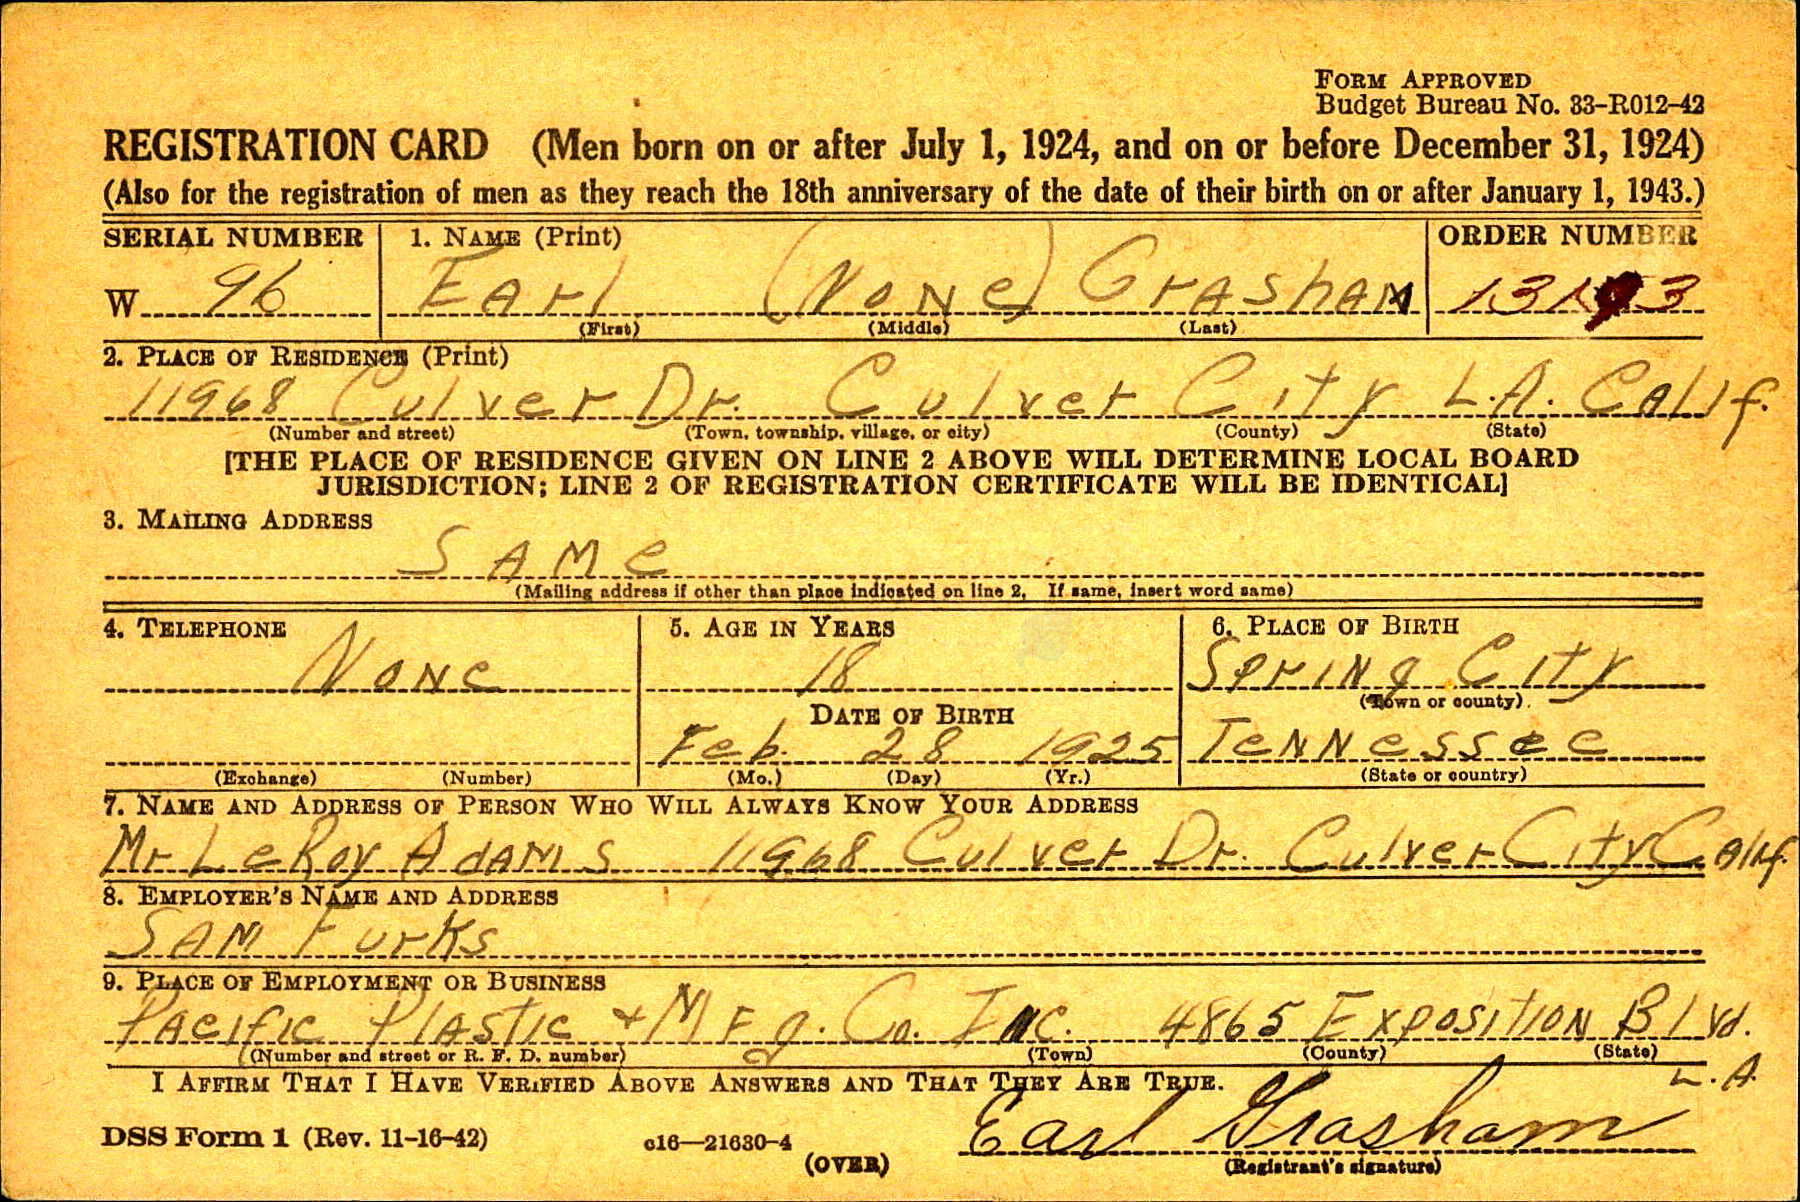 FORM APPROVED
Budget Bureau No. 33-R012-42
REGISTRATION CARD (Men born on or after July 1, 1924, and on or before December 31, 1924)
(Also for the registration of men as they reach the 18th anniversary of the date of their birth on or after January 1, 1943.)
SERIAL NUMBER 1. NAME (Print) ORDER NUMBER
W 96 Earl (None) Grasham
(First) (Middle) (Last)
2. PLACE OF RESIDENCE (Print)
11968 Culver Dr. Culver City L.A. Calif.
(Number and street) (Town, township, village, or city) (County) (State)
[THE PLACE OF RESIDENCE GIVEN ON LINE 2 ABOVE WILL DETERMINE LOCAL BOARD
JURISDICTION; LINE 2 OF REGISTRATION CERTIFICATE WILL BE IDENTICAL]
3. MAILING ADDRESS
SAME
(Mailing address if other than place indicated on line 2. If same, insert word same)
4. TELEPHONE 5. AGE IN YEARS 6. PLACE OF BIRTH
None 18 Spring City
(Town or county)
DATE OF BIRTH
Feb. 28 1925 Tennessee
(Exchange) (Number) (Mo.) (Day) (Yr.) (State or country)
7. NAME AND ADDRESS OF PERSON WHO WILL ALWAYS KNOW YOUR ADDRESS
Mr LeRoy Adams 11968 Culver Dr. Culver City Calif.
8. EMPLOYER'S NAME AND ADDRESS
SAM Furks
9. PLACE OF EMPLOYMENT OR BUSINESS
Pacific Plastic + Mfg. Co. Inc. 4865 Exposition Blvd.
(Number and street or R. F. D. number) (Town) (County) (State)
L.A.
I AFFIRM THAT I HAVE VERIFIED ABOVE ANSWERS AND THAT THEY ARE TRUE.
Earl Grasham
DSS Form 1 (Rev. 11-16-42) c16—21630-4
(OVER) (Registrant's signature)